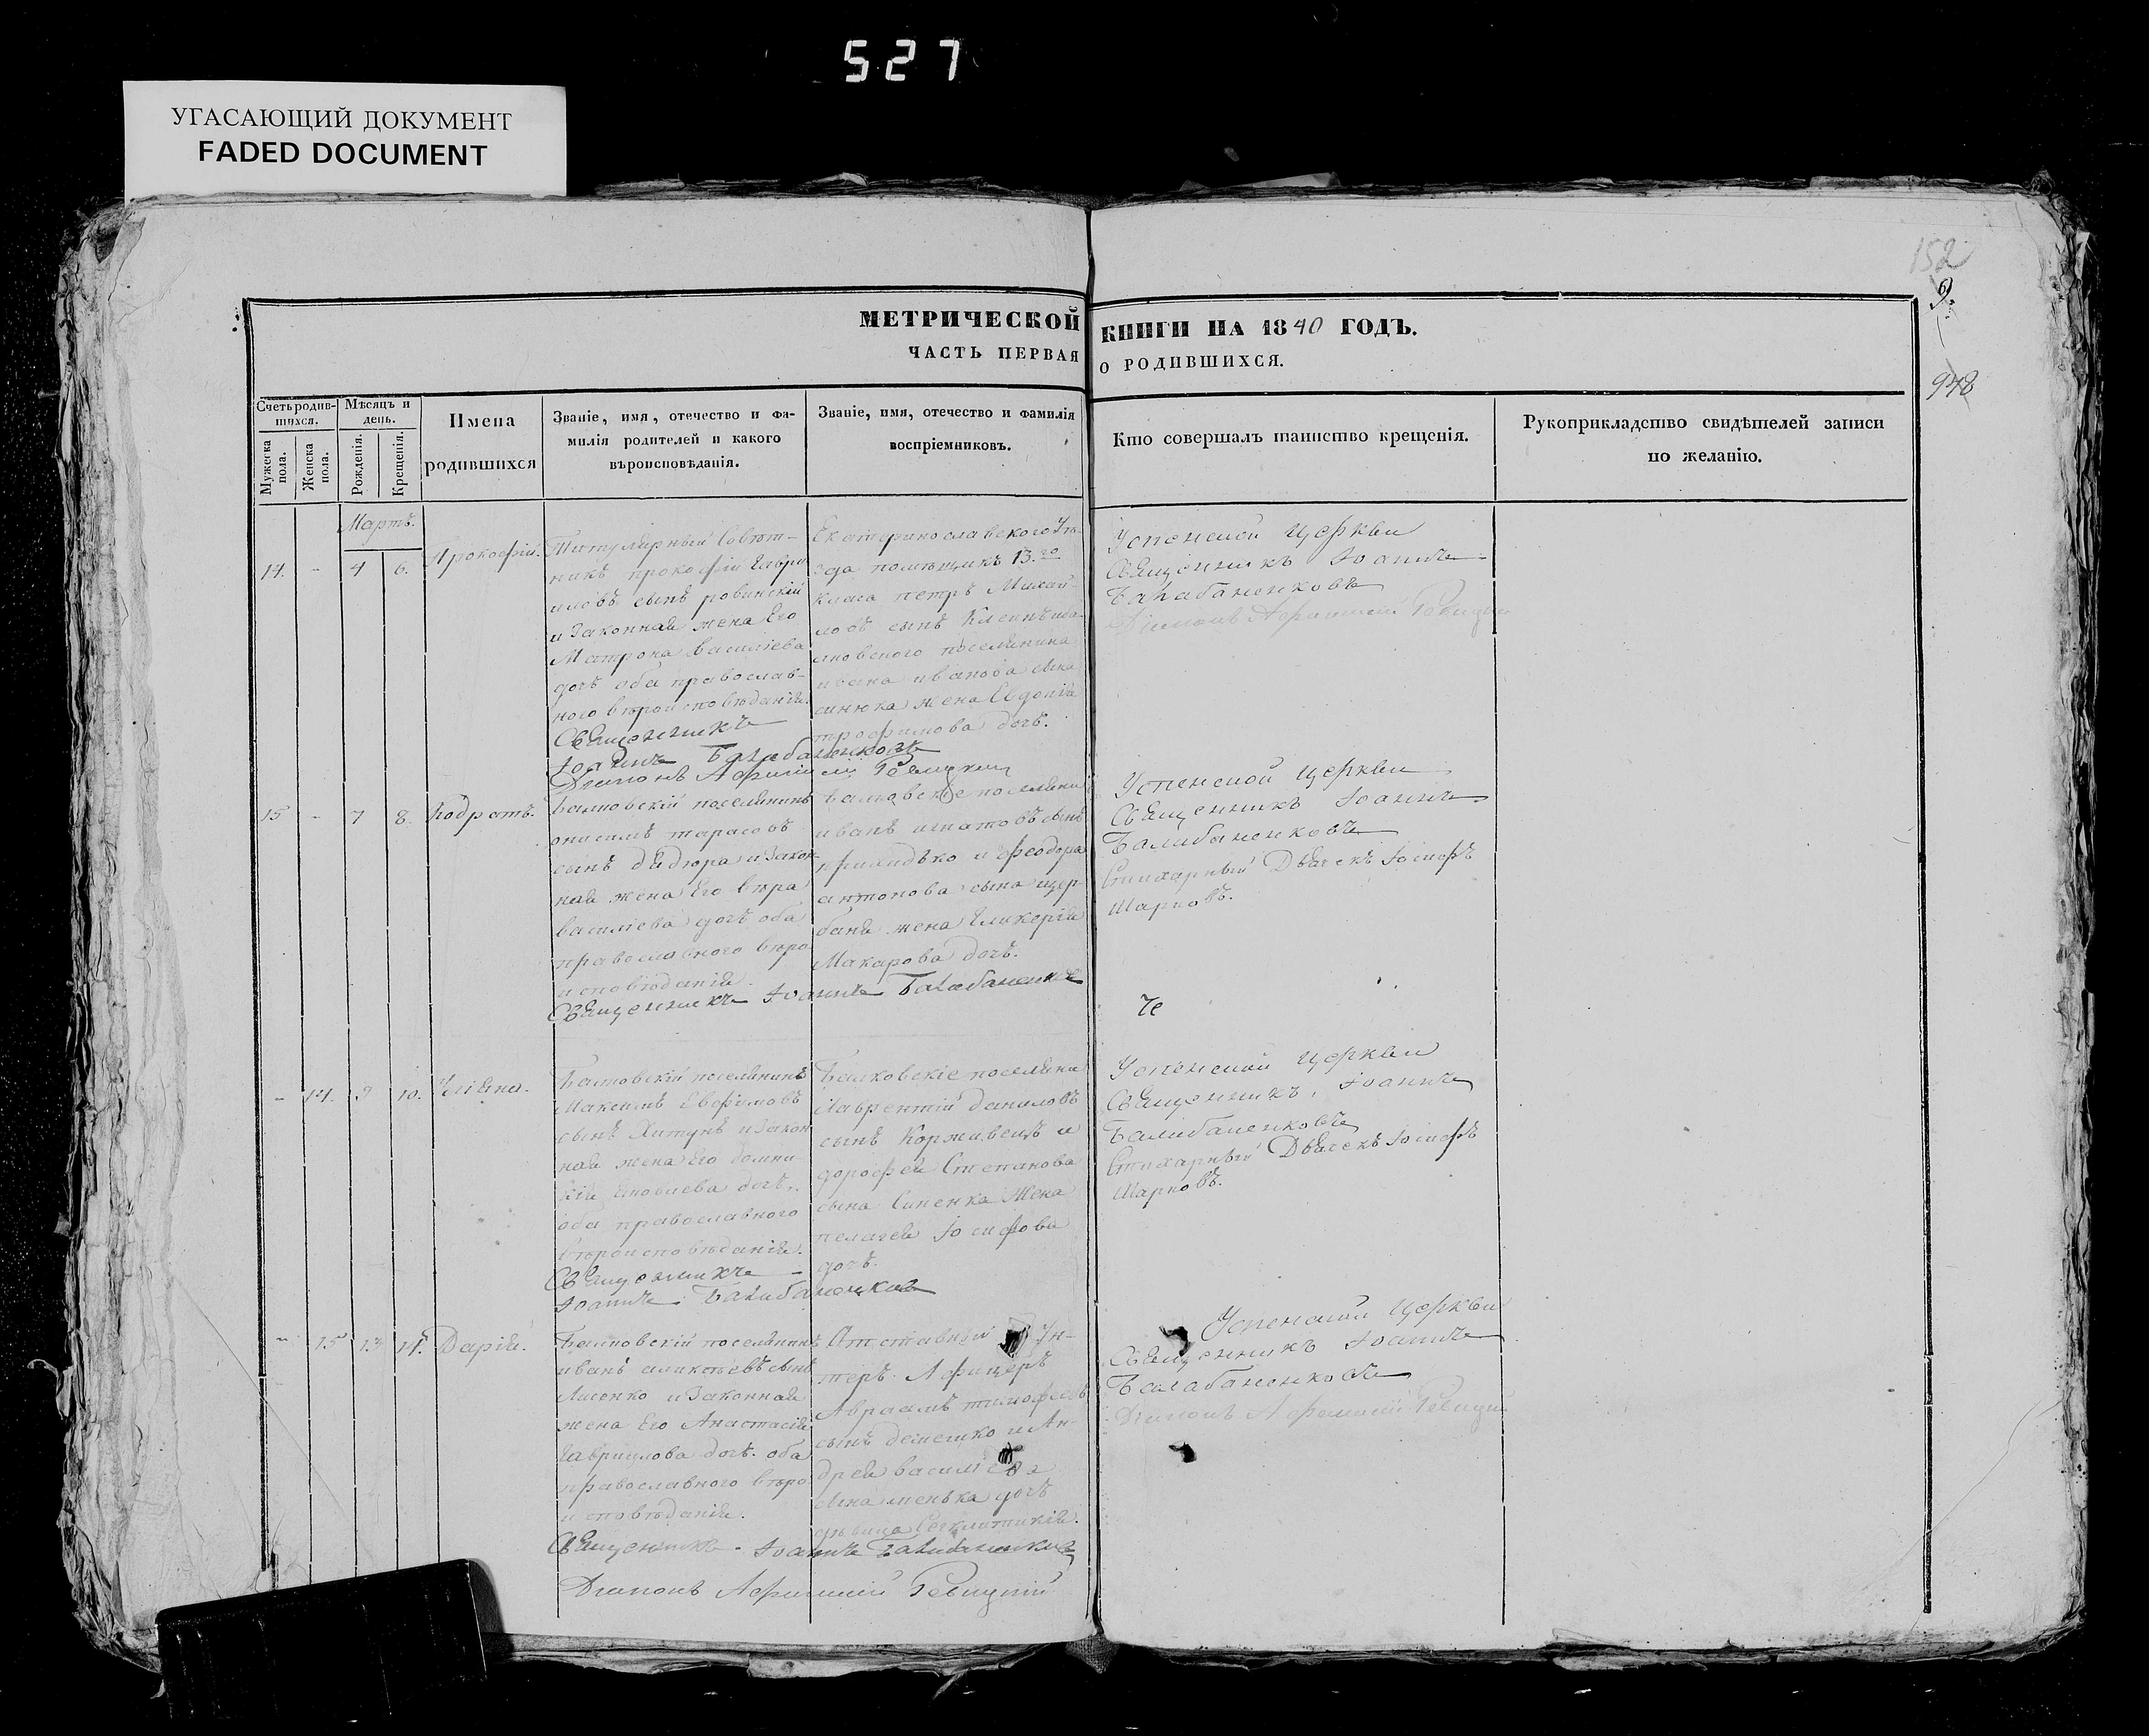 527
УГАСАЮЩИЙ ДОКУМЕНТ
FADED DOCUMENT
152
9.
948
МЕТРИЧЕСКОЙ КНИГИ НА 1840 ГОДЪ.
ЧАСТЬ ПЕРВАЯ О РОДИВШИХСЯ.
Счетъ родив-
шихся.
Мужеска пола.
Женска пола.
Мѣсяцъ и
день.
Рожденія.
Крещенія.
Имена
родившихся
Званіе, имя, отечество и фа-
милія родителей и какого
вѣроисповѣданія.
Званіе, имя, отечество и фамилія
воспріемниковъ.
Кто совершалъ таинство крещенія.
Рукоприкладство свидѣтелей записи
по желанію.
Мартъ.
14. - 4 6. Прокофій.
Титулярный Совѣт-
никъ прокофій Гаври
иловъ сынъ ровинскій
и Законная жена Его
Матрона василіева
дочь оба православ-
ного вѣроисповѣданія.
Священникъ
Іоаннъ Балабаненковъ
Екатеринославского Уѣ-
зда помѣщикъ 13.го
класа петръ Михай-
ловъ сынъ
поселянина
ивана иванова сына
синюка жена Евдокія
трофимова дочь.
Успенской церкви
Священникъ Іоаннъ
Балабаненковъ
15 - 7 8. Кодратъ.
поселянинъ
онисимъ тарасовъ
сынъ дядюра и Закон-
ная жена Его вѣра
василіева дочь оба
православного вѣро
исповѣданія.
Священникъ Іоаннъ Балабаненковъ
поселяни
иванъ игнатовъ сынъ
приходько и феодора
антонова сына щер-
баня жена Гликерія
Макарова дочь.
Успенской церкви
Священникъ Іоаннъ
Балабаненковъ
Стихарный Дьячекъ Іосифъ
Шарковъ.
- 14. 9 10. Уліяна.
поселянинъ
Максимъ Евфимовъ
сынъ Хитунъ и Закон
ная жена Его домни-
кія Яковлева дочь,
оба православного
вѣроисповѣданія.
Священникъ
Іоаннъ Балабаненковъ
поселяни
Лаврентій даниловъ
сынъ Коржавецъ и
дорофея Степанова
сына Синенка Жена
пелагея Іосифова
дочь.
Успенской церкви
Священникъ Іоаннъ
Балабаненковъ
Стихарный Дьячекъ Іосифъ
Шарковъ.
- 15 13 14. Дарія.
поселянинъ
иванъ аликсѣевъ сынъ
Лисенко и Законная
жена Его Анастасія
Гаврилова дочь. оба
православного вѣро
исповѣданія.
Священникъ Іоаннъ Балабаненковъ
Отставный Ун-
теръ Афицеръ
Авраамъ тимофеевъ
сынъ и Ан-
дрея василіева
дочь
дѣвица
Успенской церкви
Священникъ Іоаннъ
Балабаненковъ